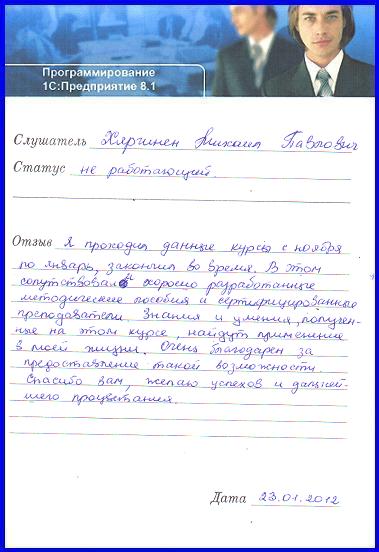 Программирование
1С:Предприятие 8.1
Слушатель Хяргинен Михаил Павлович
Статус не работающий.
Отзыв Я проходил данные курсы с ноября
по январь, закончил во время. В этом
сопутствовали хорошо разработанные
методические пособия и сертифицированные
преподаватели. Знания и умения, получен-
ные на этом курсе, найдут применение
в моей жизни. Очень благодарен за
предоставление такой возможности.
Спасибо вам, желаю успехов и дальней-
шего процветания.
Дата 23.01.2012